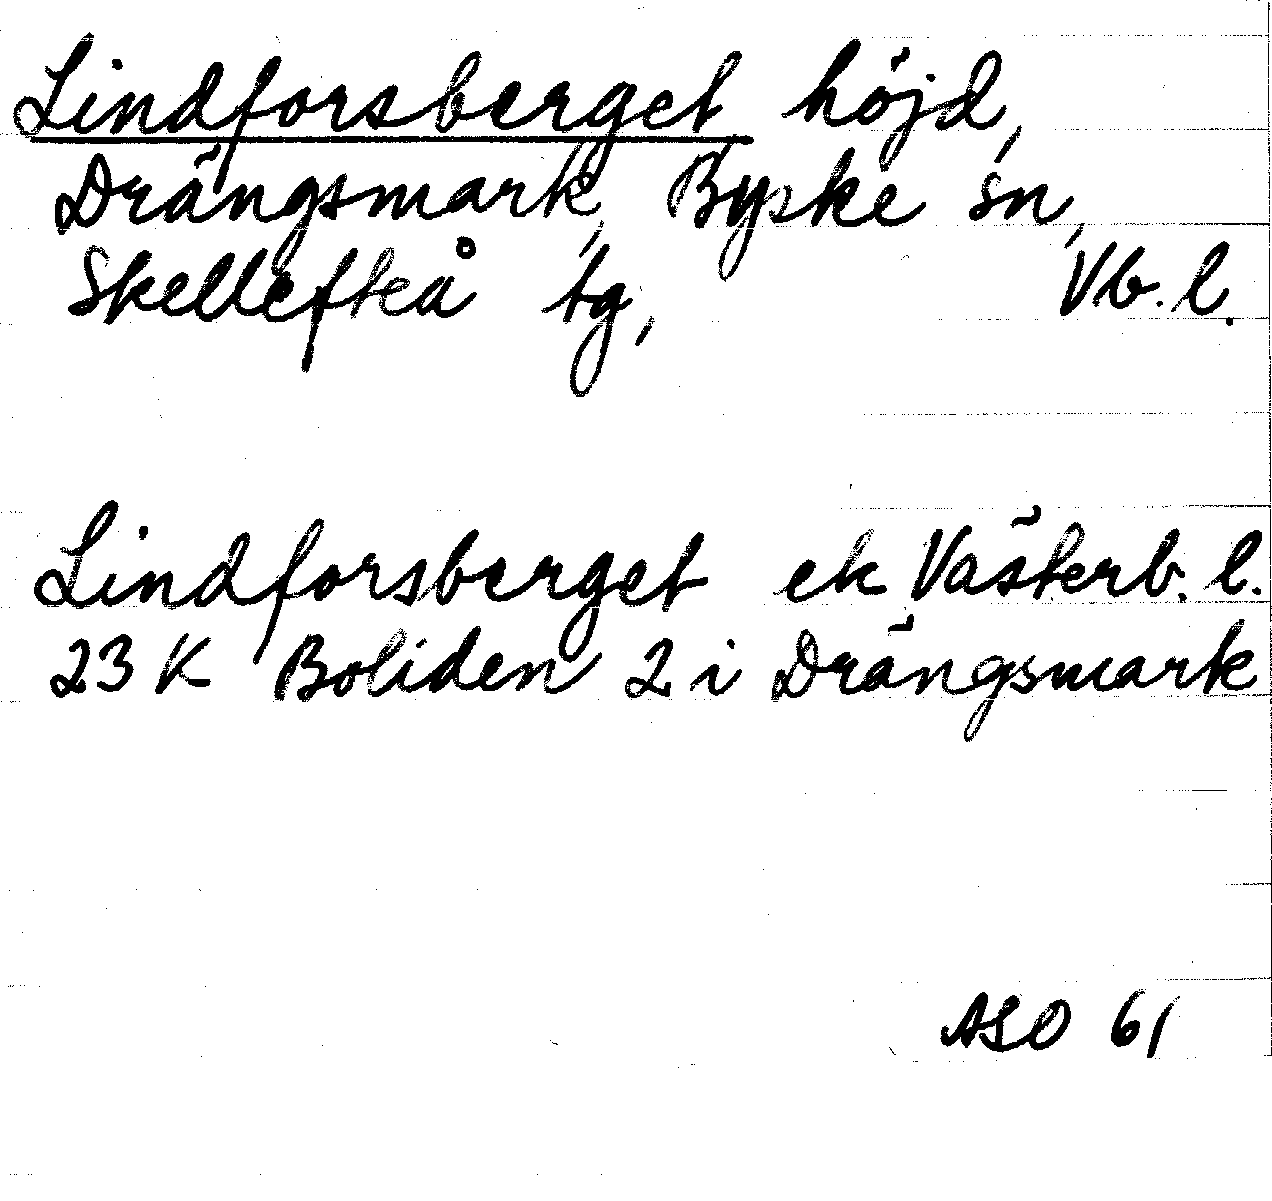 Lindforsberget höjd,
Drängsmark, Byske sn,
Skellefteå tg, Vb. l.
Lindforsberget ek Västerb. l.
23 K Boliden 2 i Drängsmark
ASO 61